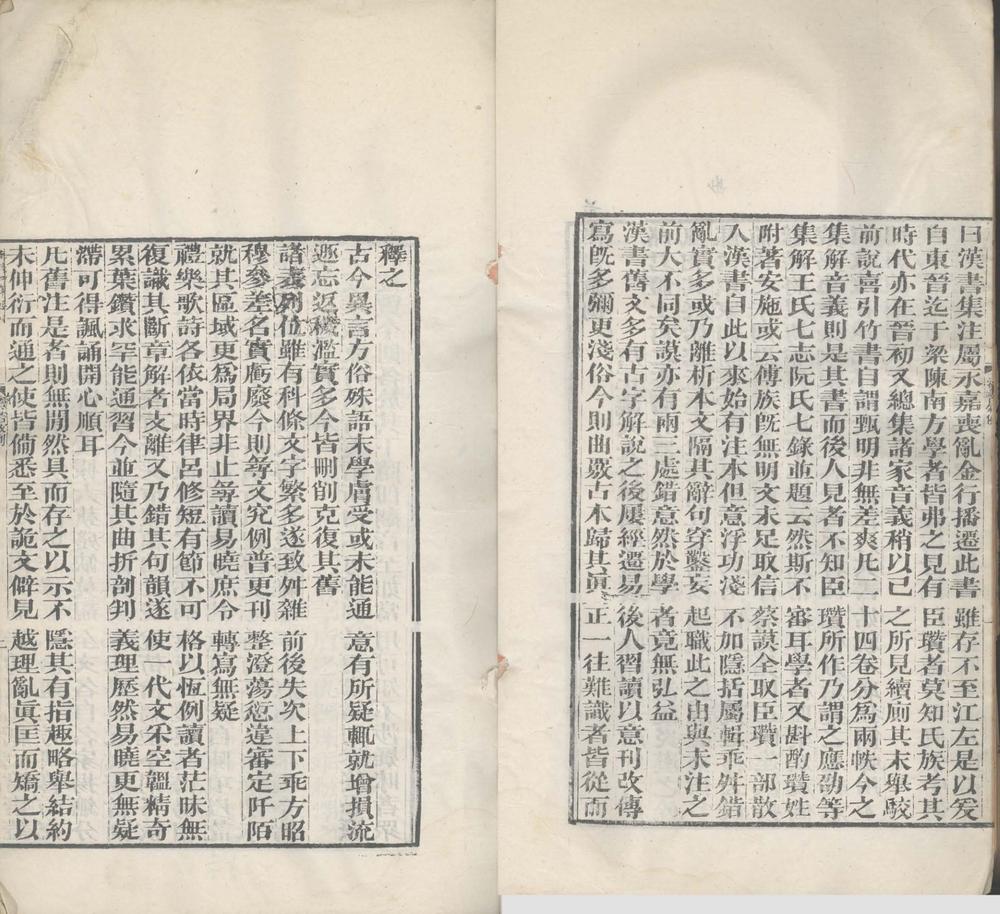 曰漢書集注屬永嘉喪亂金行播遷此書雖存不至江左是以爰
自東晉迄于梁陳南方學者皆弗之見有臣瓚者莫知氏族考其
時代亦在晉初又總集諸家音義稍以己之所見續廁其末舉駮
前說喜引竹書自謂甄明非無差爽凡二十四卷分爲兩帙今之
集解音義則是其書而後人見者不知臣瓚所作乃謂之應劭等
集解王氏七志阮氏七錄並題云然斯不審耳學者又斟酌瓚姓
附著安施或云傅族旣無明文未足取信蔡謨全取臣瓚一部散
入漢書自此以來始有注本但意浮功淺不加隱括屬輯乖舛錯
亂實多或乃離析本文隔其辭句穿鑿妄起職此之由與未注之
前大不同矣謨亦有兩三處錯意然於學者竟無弘益
漢書舊文多有古字解說之後屢經遷易後人習讀以意刊改傳
寫旣多彌更淺俗今則曲覈古本歸其眞正一往難識者皆從而
釋之
古今異言方俗殊語末學膚受或未能通意有所疑輒就增損流
遯忘返穢濫實多今皆刪削克復其舊
諸表列位雖有科條文字繁多遂致舛雜前後失次上下乖方昭
穆參差名實虧廢今則尋文究例普更刊整澄蕩愆違審定阡陌
就其區域更爲局界非止尋讀易曉庶令轉寫無疑
禮樂歌詩各依當時律呂修短有節不可格以恆例讀者茫昧無
復識其斷章解者支離又乃錯其句韻遂使一代文采空韞精奇
累葉鑽求罕能通習今並隨其曲折剖判義理歷然易曉更無疑
滯可得諷誦開心順耳
凡舊注是者則無閒然具而存之以示不隱其有指趣略舉結約
未伸衍而通之使皆備悉至於詭文僻見越理亂眞匡而矯之以